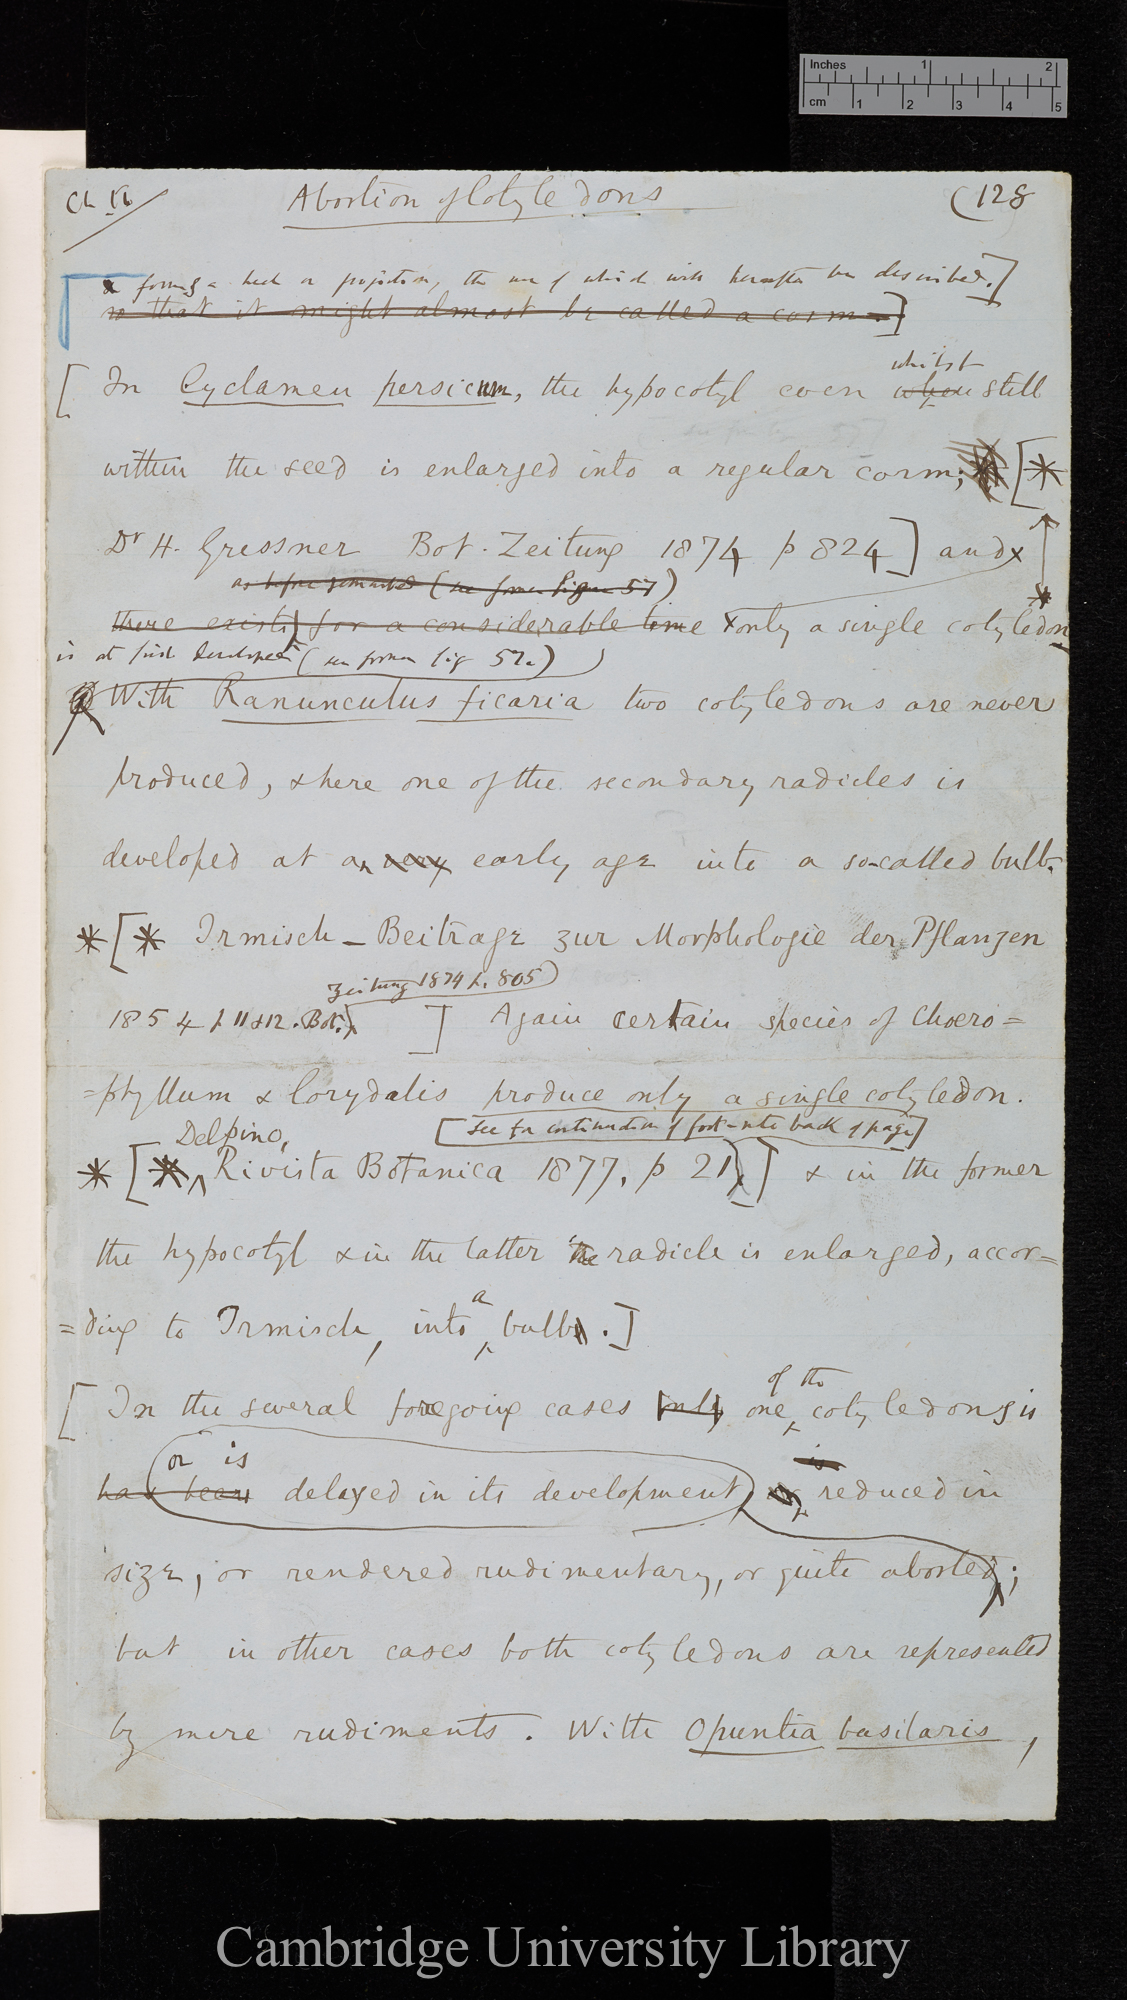 Inches 1 2
cm 1 2 3 4 5
Abortion of Cotyledons
(128
& forms a heel or projection, the use of which will hereafter be described.]
so that it might almost be called a corm.]
whilst
[ In Cyclamen persicum, the hypocotyl even when still
within the seed is enlarged into a regular corm; [*
Dr H. Gressner Bot. Zeitung 1874 p 824] and x
as before remarked (see former figure 57)
there exists for a considerable time x only a single cotyledon
is at first developed (see former fig 57.)
With Ranunculus ficaria two cotyledons are never
produced, & here one of the secondary radicles is
developed at an very early age into a so-called bulb.
* [* Irmisch – Beitrage zur Morphologie der Pflanzen
Zeitung 1874 p. 805)
1854 p 11 & 12. Bot. ] Again certain species of Choero=
=phyllum & Corydalis produce only a single cotyledon.
Delpino, [See for continuation of foot-note back of page]
* [* Rivista Botanica 1877, p 21] & in the former
the hypocotyl & in the latter the radicle is enlarged, accor=
a
=ding to Irmisch, into bulbs.]
of the
[ In the several foregoing cases only one cotyledons is
or is is
has been delayed in its development or reduced in
size, or rendered rudimentary, or quite aborted;
but in other cases both cotyledons are represented
by mere rudiments. With Opuntia basilaris,
Cambridge University Library